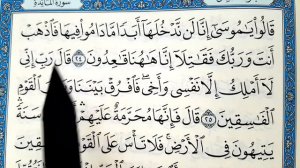 سورة المائدة
قَالُوا۟ يَـٰمُوسَىٰٓ إِنَّا لَن نَّدْخُلَهَآ أَبَدًا مَّا دَامُوا۟ فِيهَا فَٱذْهَبْ
أَنتَ وَرَبُّكَ فَقَـٰتِلَآ إِنَّا هَـٰهُنَا قَـٰعِدُونَ ٢٤ قَالَ رَبِّ إِنِّى
لَآ أَمْلِكُ إِلَّا نَفْسِى وَأَخِى ۖ فَٱفْرُقْ بَيْنَنَا وَبَيْنَ ٱلْقَوْمِ
ٱلْفَـٰسِقِينَ ٢٥ قَالَ فَإِنَّهَا مُحَرَّمَةٌ عَلَيْهِمْ ۛ أَرْبَعِينَ سَنَةً ۛ
يَتِيهُونَ فِى ٱلْأَرْضِ ۚ فَلَا تَأْسَ عَلَى ٱلْقَوْمِ ٱلْفَـٰسِقِينَ